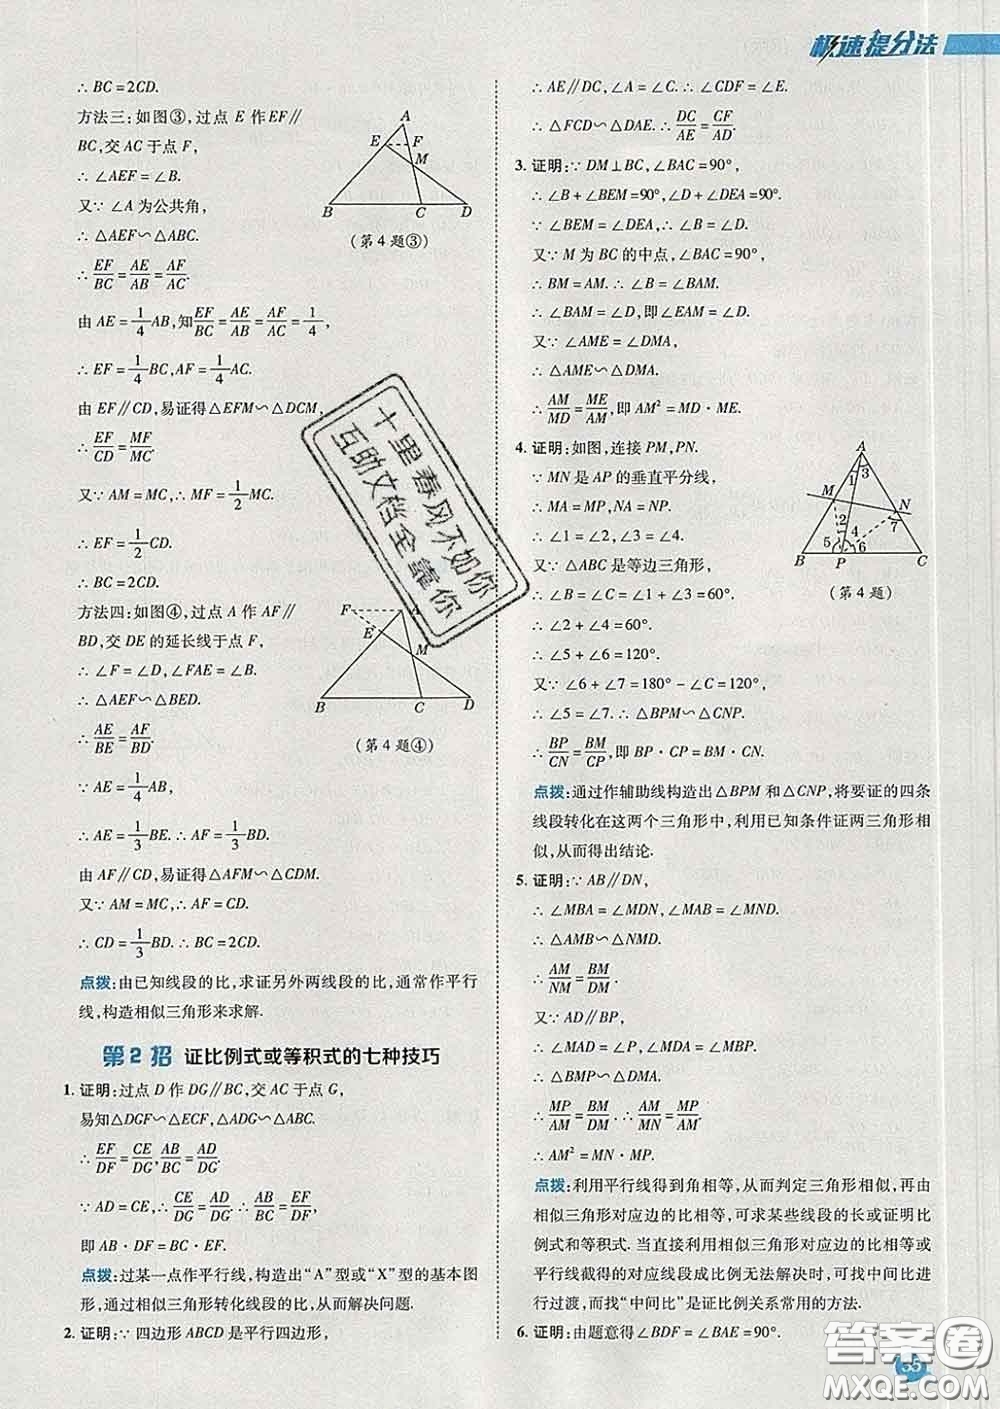 极速提分法
∴ BC=2CD.
方法三:如图③,过点 E 作 EF∥
BC,交 AC 于点 F,
∴ ∠AEF=∠B.
又∵ ∠A 为公共角,
∴ △AEF∽△ABC.
∴ EF/BC=AE/AB=AF/AC.
由 AE=1/4AB,知EF/BC=AE/AB=AF/AC=1/4,
∴ EF=1/4BC,AF=1/4AC.
由 EF∥CD,易证得△EFM∽△DCM,
∴ EF/CD=MF/MC.
又∵ AM=MC,∴ MF=1/2MC.
∴ EF=1/2CD.
∴ BC=2CD.
方法四:如图④,过点 A 作 AF∥
BD,交 DE 的延长线于点 F,
∴ ∠F=∠D,∠FAE=∠B.
∴ △AEF∽△BED.
∴ AE/BE=AF/BD.
∵ AE=1/4AB,
∴ AE=1/3BE. ∴ AF=1/3BD.
由 AF∥CD,易证得△AFM∽△CDM.
又∵ AM=MC,∴ AF=CD.
∴ CD=1/3BD.∴ BC=2CD.
点拨:由已知线段的比,求证另外两线段的比,通常作平行
线,构造相似三角形来求解.
A
E
F
M
B
C
D
(第 4 题③)
F
A
E
M
B
C
D
(第 4 题④)
第 2 招 证比例式或等积式的七种技巧
1. 证明:过点 D 作 DG∥BC,交 AC 于点 G,
易知△DGF∽△ECF,△ADG∽△ABC.
∴ EF/DF=CE/DG,AB/BC=AD/DG.
∵ AD=CE,∴ CE/DG=AD/DG.∴ AB/BC=EF/DF,
即 AB·DF=BC·EF.
点拨:过某一点作平行线,构造出“A”型或“X”型的基本图
形,通过相似三角形转化线段的比,从而解决问题.
2. 证明:∵ 四边形 ABCD 是平行四边形,
∴ AE∥DC,∠A=∠C.∴ ∠CDF=∠E.
∴ △FCD∽△DAE.∴ DC/AE=CF/AD.
3. 证明:∵ DM⊥BC,∠BAC=90°,
∴ ∠B+∠BEM=90°,∠D+∠DEA=90°.
∵ ∠BEM=∠DEA,∴ ∠B=∠D.
又∵ M 为 BC 的中点,∠BAC=90°,
∴ BM=AM.∴ ∠B=∠BAM.
∴ ∠BAM=∠D,即∠EAM=∠D.
又∵ ∠AME=∠DMA,
∴ △AME∽△DMA.
∴ AM/MD=ME/AM,即 AM²=MD·ME.
4. 证明:如图,连接 PM,PN.
∵ MN 是 AP 的垂直平分线,
∴ MA=MP,NA=NP.
∴ ∠1=∠2,∠3=∠4.
又∵ △ABC 是等边三角形,
∴ ∠B=∠C=∠1+∠3=60°.
∴ ∠2+∠4=60°.
∴ ∠5+∠6=120°.
又∵ ∠6+∠7=180°-∠C=120°,
∴ ∠5=∠7.∴ △BPM∽△CNP.
∴ BP/CN=BM/CP,即 BP·CP=BM·CN.
A
1
3
M
N
7
2
4
5
6
B
P
C
(第 4 题)
点拨:通过作辅助线构造出△BPM 和△CNP,将要证的四条
线段转化在这两个三角形中,利用已知条件证两三角形相
似,从而得出结论.
5. 证明:∵ AB∥DN,
∴ ∠MBA=∠MDN,∠MAB=∠MND.
∴ △AMB∽△NMD.
∴ AM/NM=BM/DM.
又∵ AD∥BP,
∴ ∠DAM=∠MPB,∠ADM=∠MBP.
∴ △ADM∽△PBM.
∴ MP/AM=BM/DM.∴ AM/MN=MP/AM.
∴ AM²=MN·MP.
点拨:利用平行线得到角相等,从而判定三角形相似,再由
相似三角形对应边的比相等,可求某些线段的长或证明比
例式和等积式. 当直接利用相似三角形对应边的比相等或
平行线截得的对应线段成比例无法解决时,可找中间比进
行过渡,而找“中间比”是证比例关系常用的方法.
6. 证明:由题意得∠BDF=∠BAE=90°.
十里春风不如你
互助文档全靠你
答案圈
MXQE.COM
55